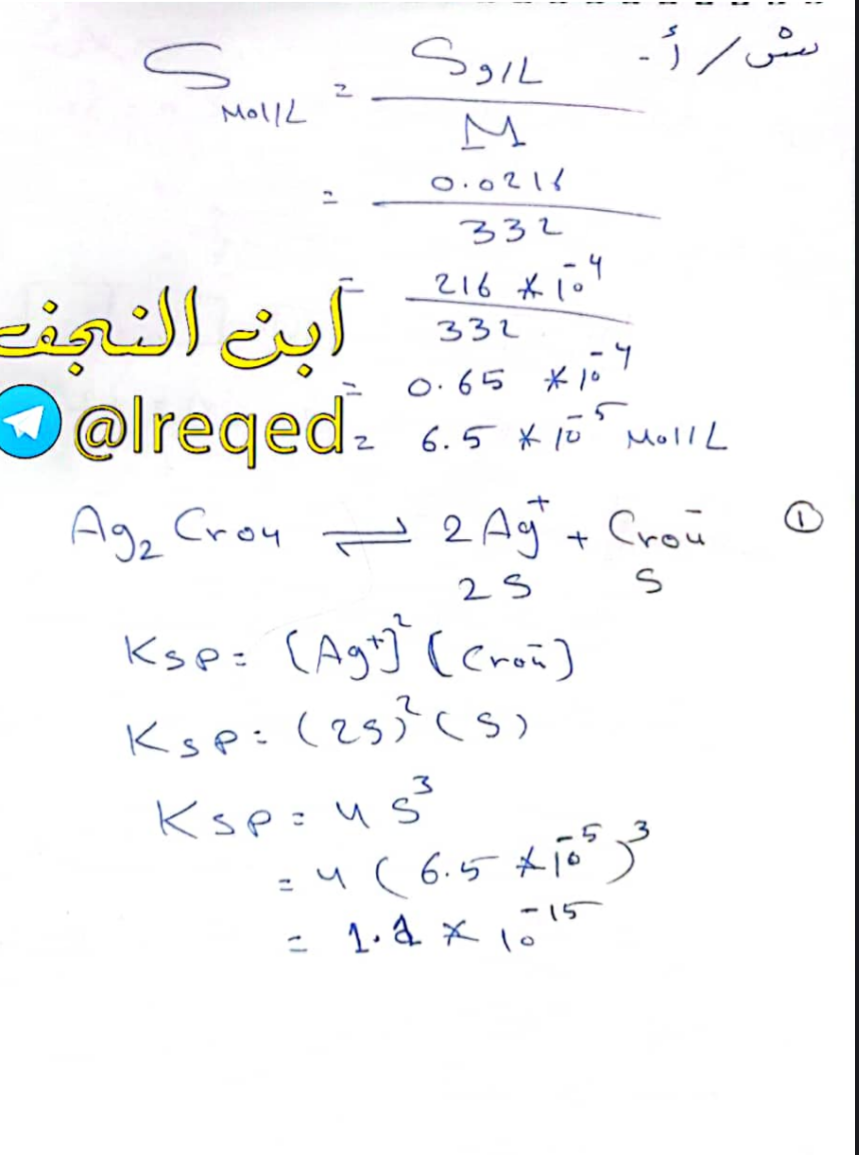 س/ أ-
S Mol/L = S g/L / M
= 0.0216 / 332
= 216 * 10⁻⁴ / 332
= 0.65 * 10⁻⁴
= 6.5 * 10⁻⁵ Mol/L
ابن النجف
@lreqed
Ag₂CrO₄ ⇌ 2Ag⁺ + CrO₄⁻ ①
2S S
Ksp = [Ag⁺]² [CrO₄⁻]
Ksp = (2S)² (S)
Ksp = 4S³
= 4 (6.5 * 10⁻⁵)³
= 1.1 * 10⁻¹⁵